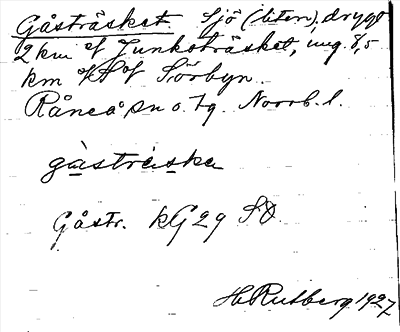 Gåsträsket. Sjö (liten), drygt
2 km Junkoträsket, ung. 8,5
km Sörbyn.
Råneå sn o. tg. Norrb. l.
gåstrèska
Gåstr. kG 29 SO.
H Rutberg 1927.